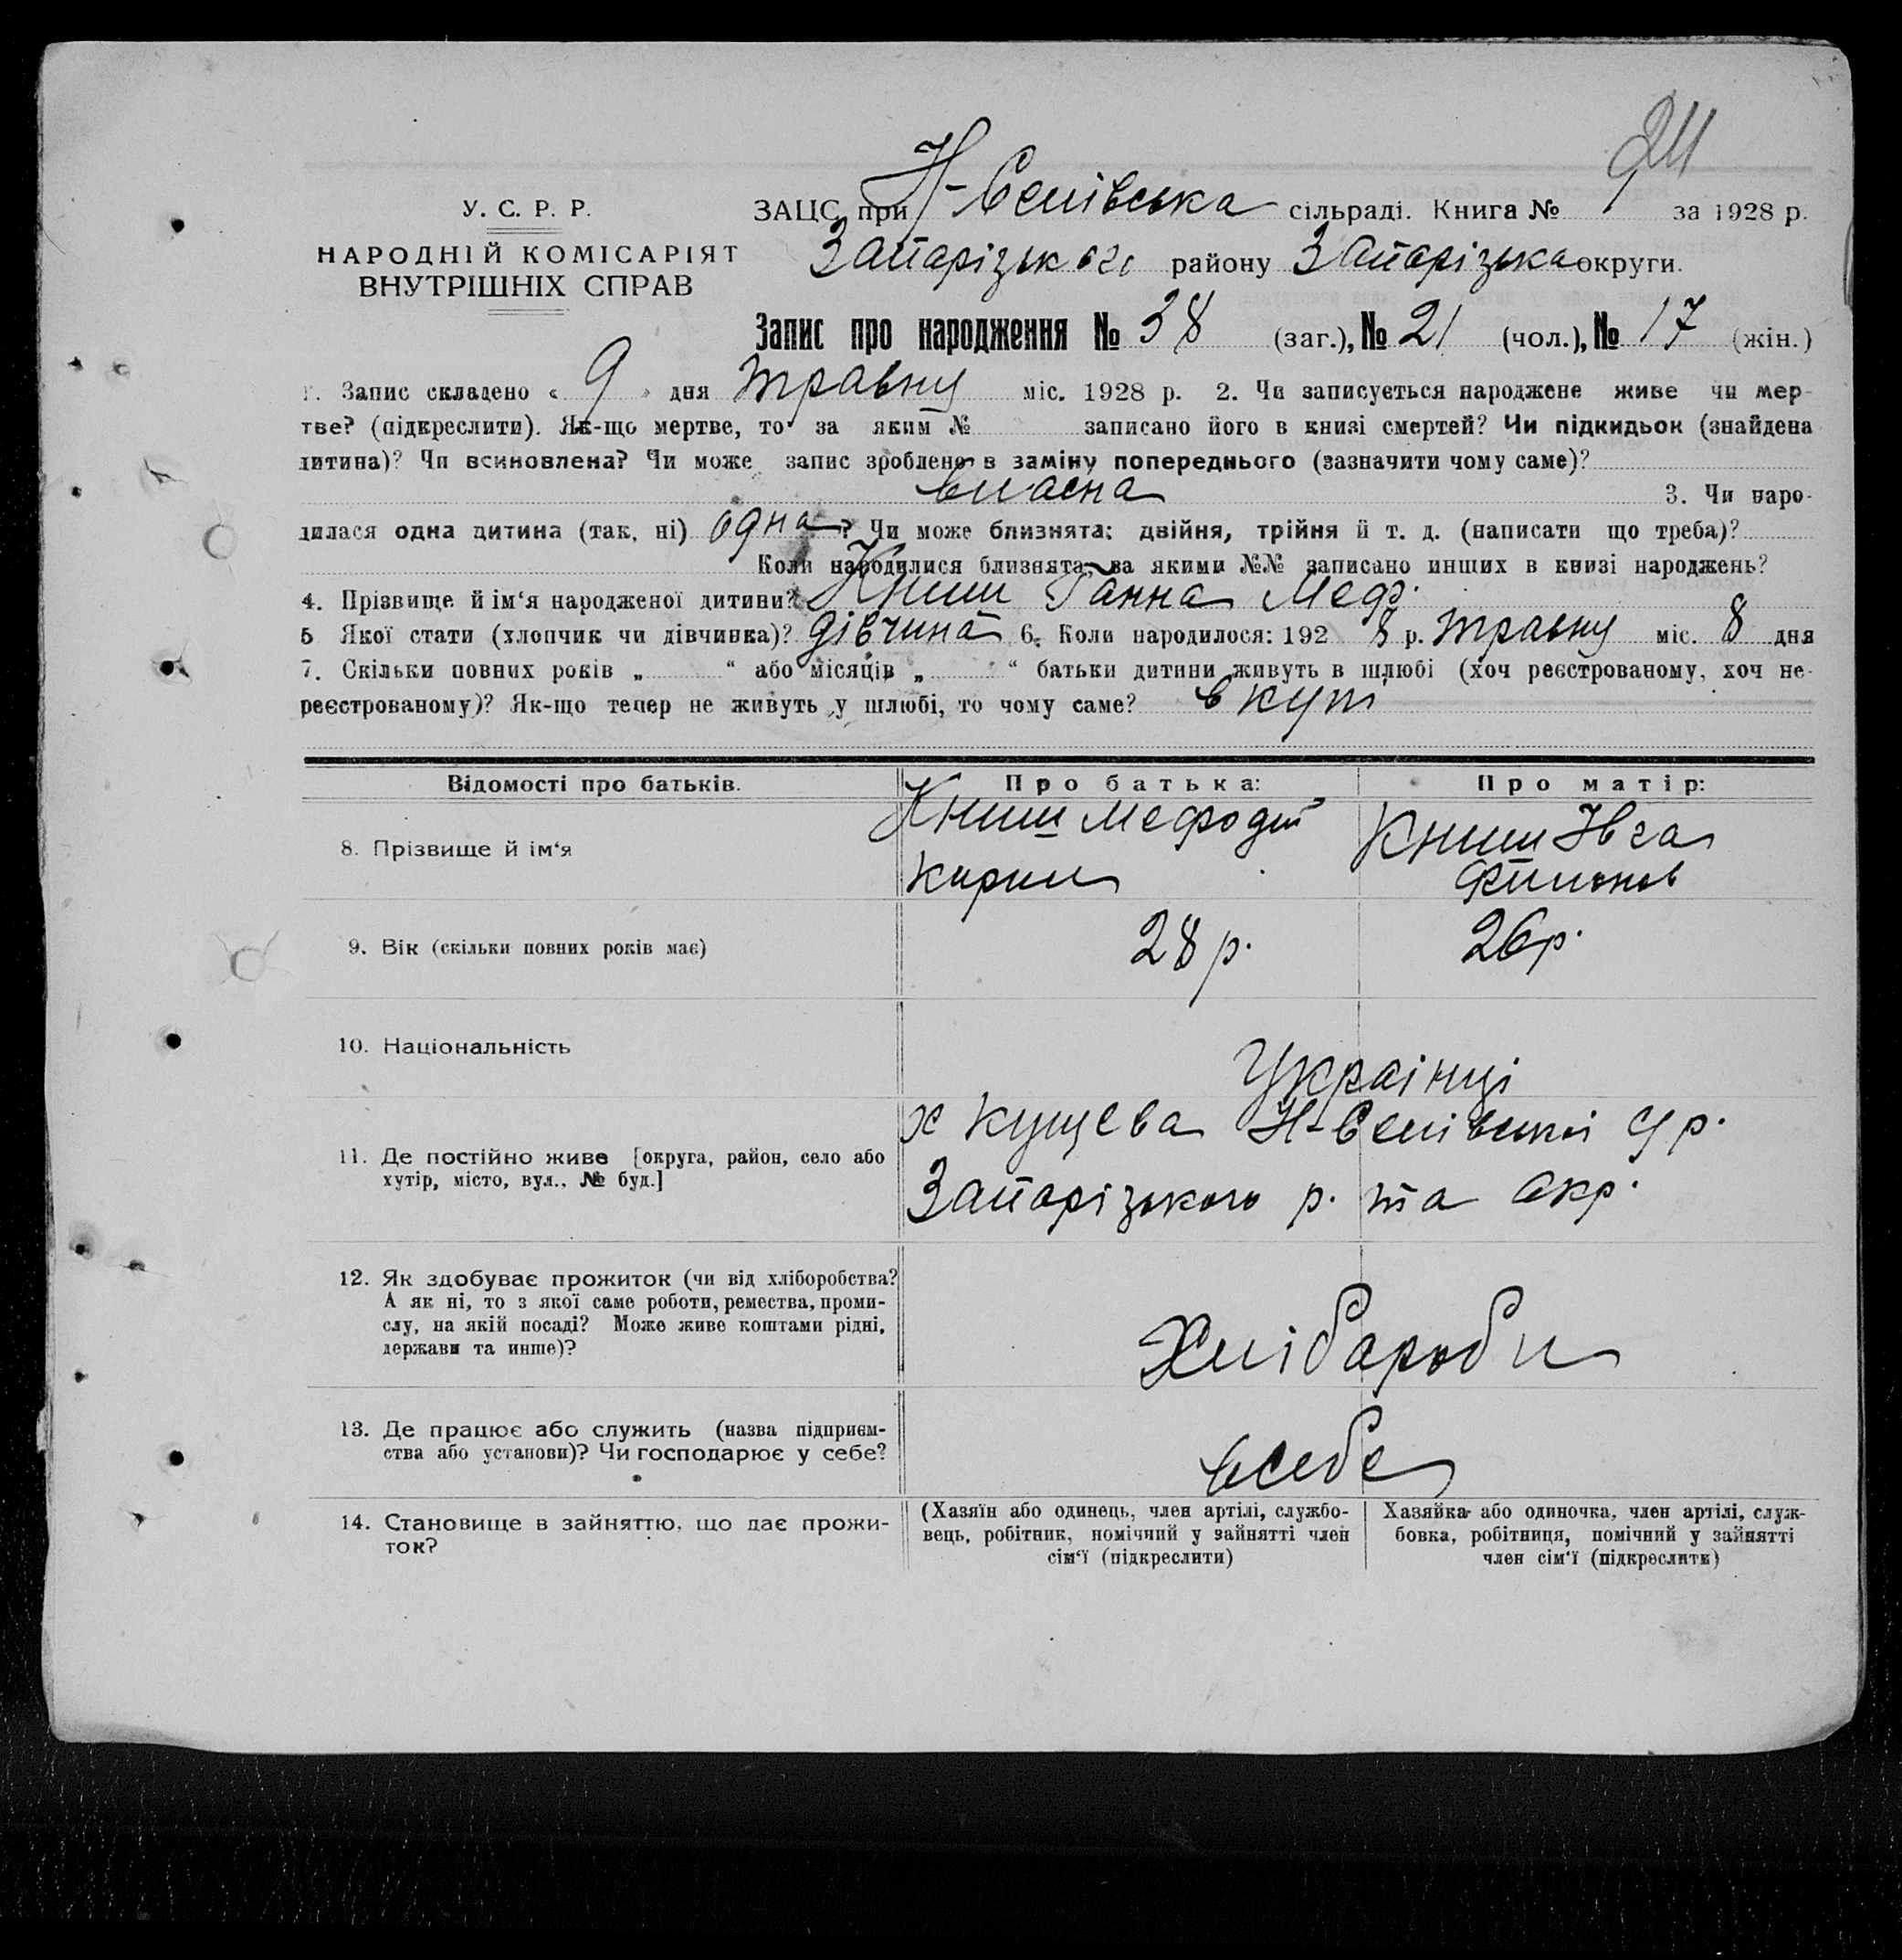 211
У. С. Р. Р.
НАРОДНІЙ КОМІСАРІЯТ
ВНУТРІШНІХ СПРАВ
ЗАЦС при Н-Єлівська сільраді. Книга № 1 за 1928 р.
Запарізького району Запарізька округи.
Запис про народження № 38 (заг.), № 21 (чол.), № 17 (жін.)
1. Запис складено « 9 » дня травну міс. 1928 р. 2. Чи записується народжене живе чи мер-
тве? (підкреслити). Як-що мертве, то за яким № записано його в книзі смертей? Чи підкидьок (знайдена
дитина)? Чи всиновлена? Чи може запис зроблено в заміну попереднього (зазначити чому саме)?
власна 3. Чи наро-
дилася одна дитина (так, ні) одна? Чи може близнята: двійня, трійня й т. д. (написати що треба)?
Коли народилися близнята, за якими №№ записано инших в книзі народжень?
4. Прізвище й ім‘я народженої дитини? Книш Ганна Меф.
5 Якої стати (хлопчик чи дівчинка)? дівчина 6. Коли народилося: 192 8 р. травну міс. 8 дня
7. Скільки повних років „ “ або місяців „ “ батьки дитини живуть в шлюбі (хоч реєстрованому, хоч не-
реєстрованому)? Як-що тепер не живуть у шлюбі, то чому саме? вкупі
Відомості про батьків. Про батька: Про матір:
8. Прізвище й ім‘я Книш Мефодій Кирил Книш Івга Филонов
9. Вік (скільки повних років має) 28 р. 26 р.
10. Національність Украінці
11. Де постійно живе [округа, район, село або
хутір, місто, вул., № буд.]
х Кущева Н-Єлівськоі с/р.
Запарізького р. та Окр.
12. Як здобуває прожиток (чи від хліборобства?
А як ні, то з якої саме роботи, ремества, проми-
слу, на якій посаді? Може живе коштами рідні,
держави та инше)?
Хлібароби
13. Де працює або служить (назва підприєм-
ства або установи)? Чи господарює у себе?
всебе
14. Становище в зайняттю, що дає прожи-
ток?
(Хазяїн або одинець, член артілі, службо-
вець, робітник, помічний у зайнятті член
сім‘ї (підкреслити)
Хазяйка або одиночка, член артілі, служ-
бовка, робітниця, помічний у зайнятті
член сім‘ї (підкреслити)